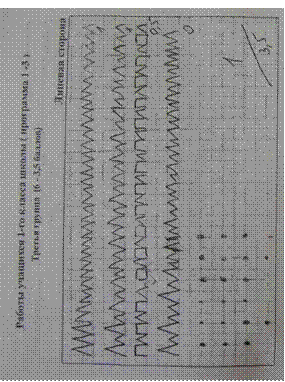 Работы учащихся 1-го класса школы ( программа 1 -3 )
Третья группа (6 - 3,5 баллов)
Лицевая сторона
1
1
0,5
0
1
3,5